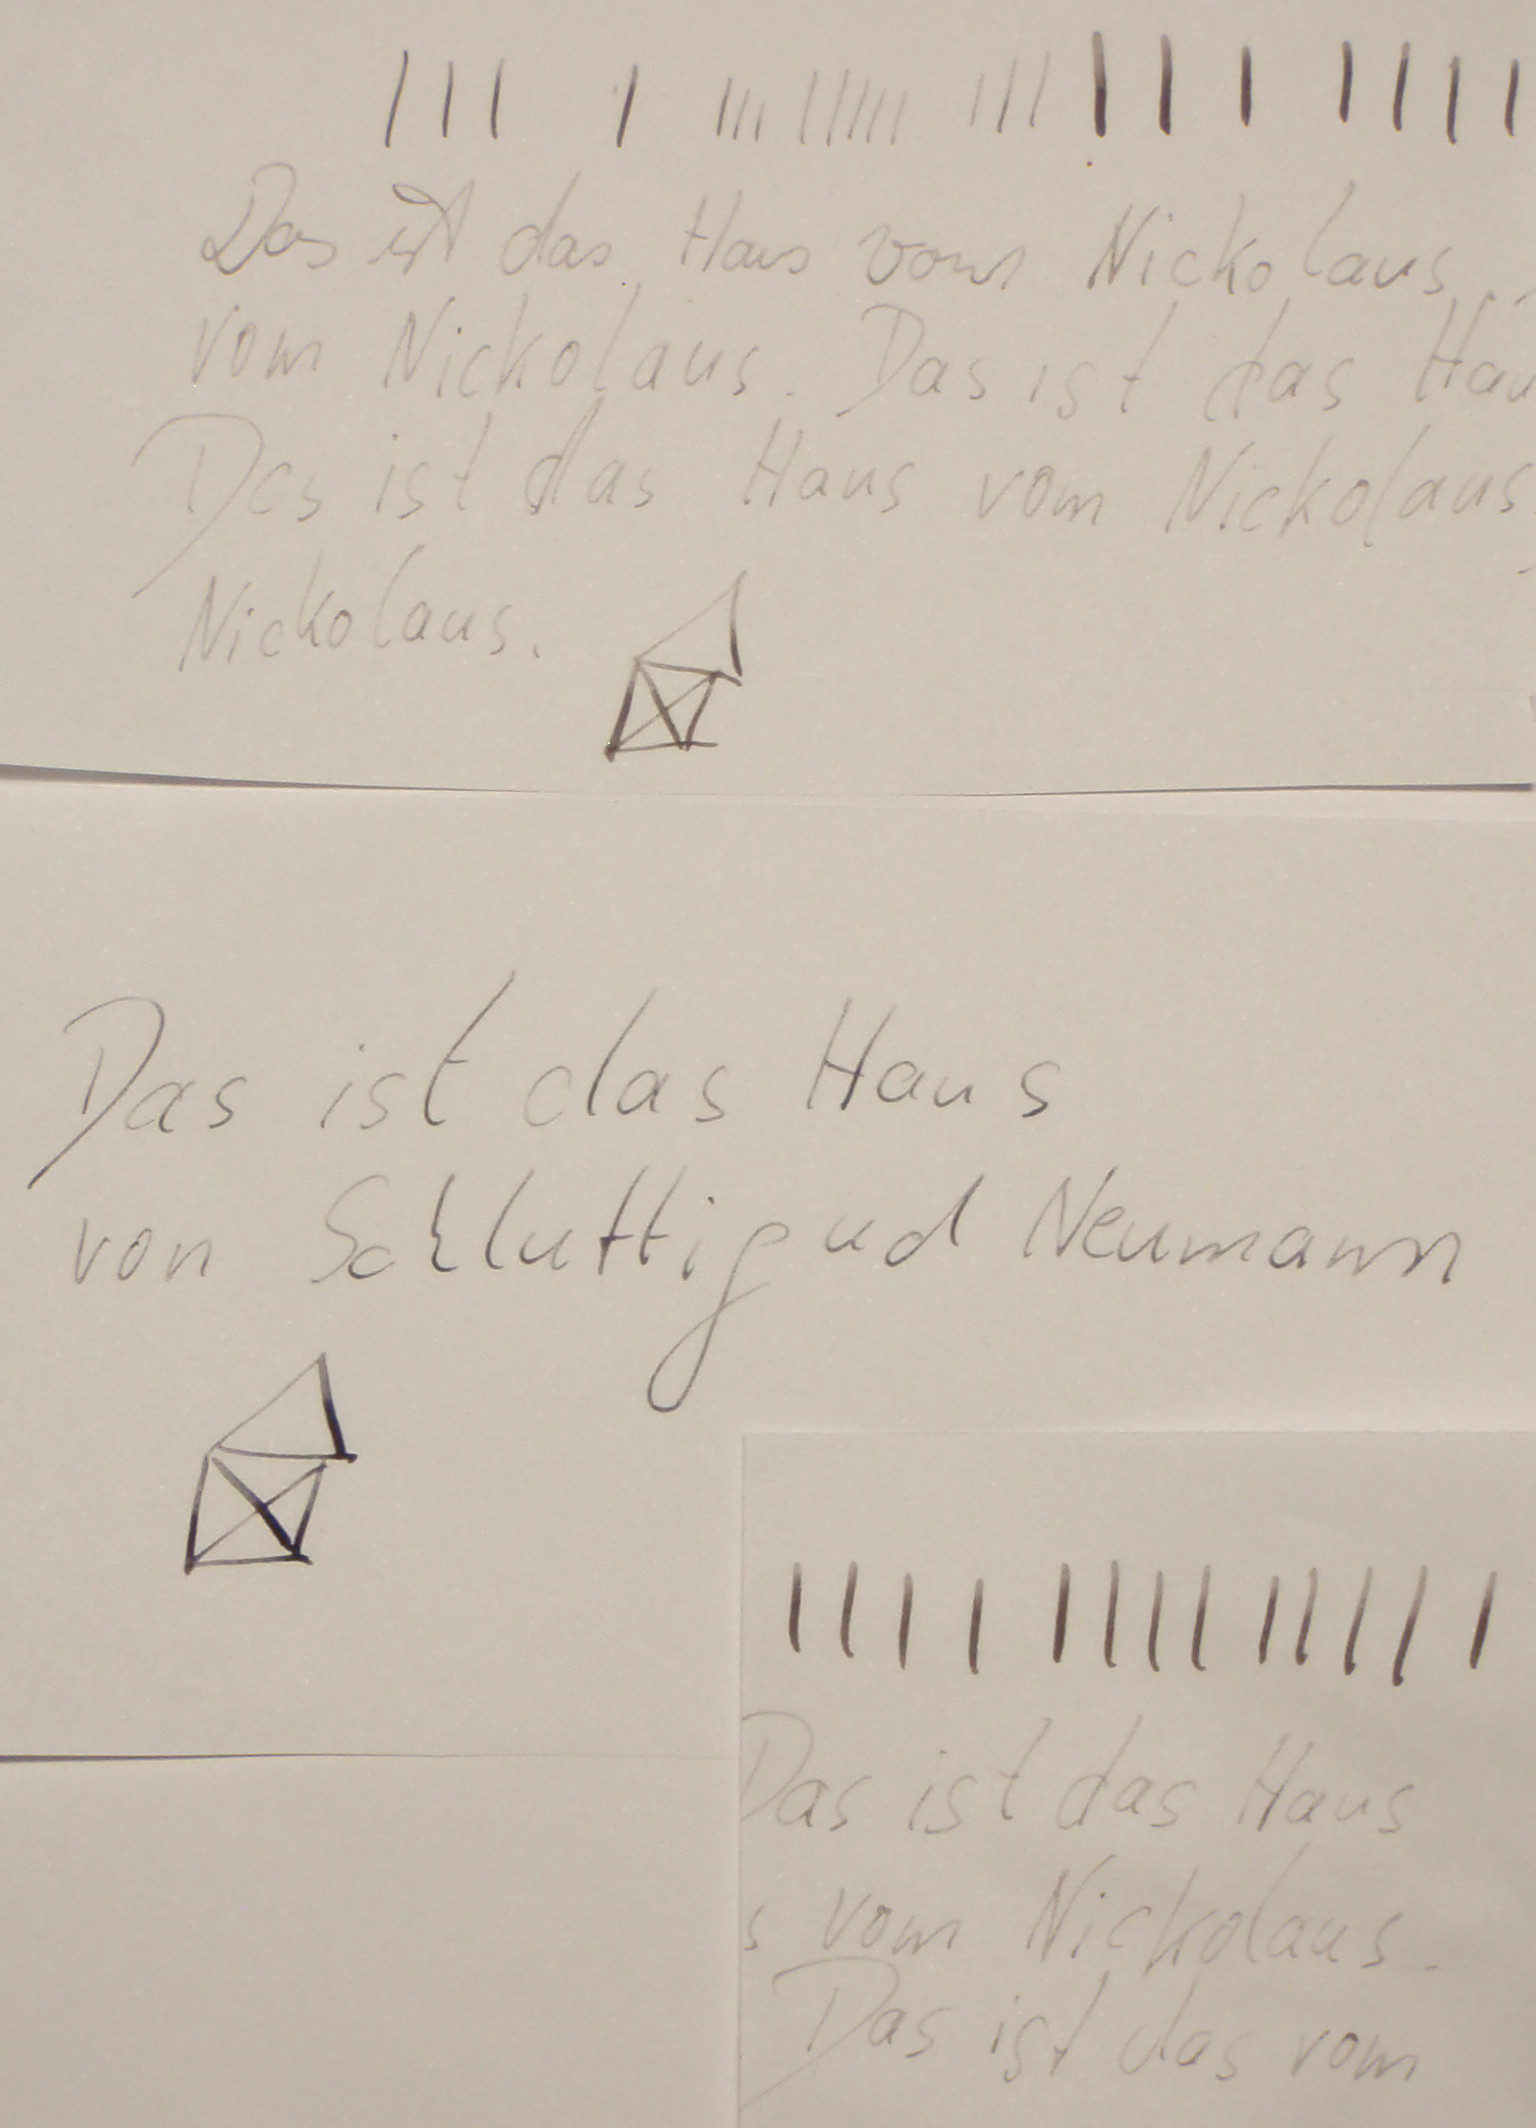 Das ist das Haus vom Nickolaus.
vom Nickolaus. Das ist das Hau
Das ist das Haus vom Nickolaus
Nickolaus.
Das ist das Haus
von Schluttig und Neumann
Das ist das Haus
s vom Nickolaus.
Das ist das vom